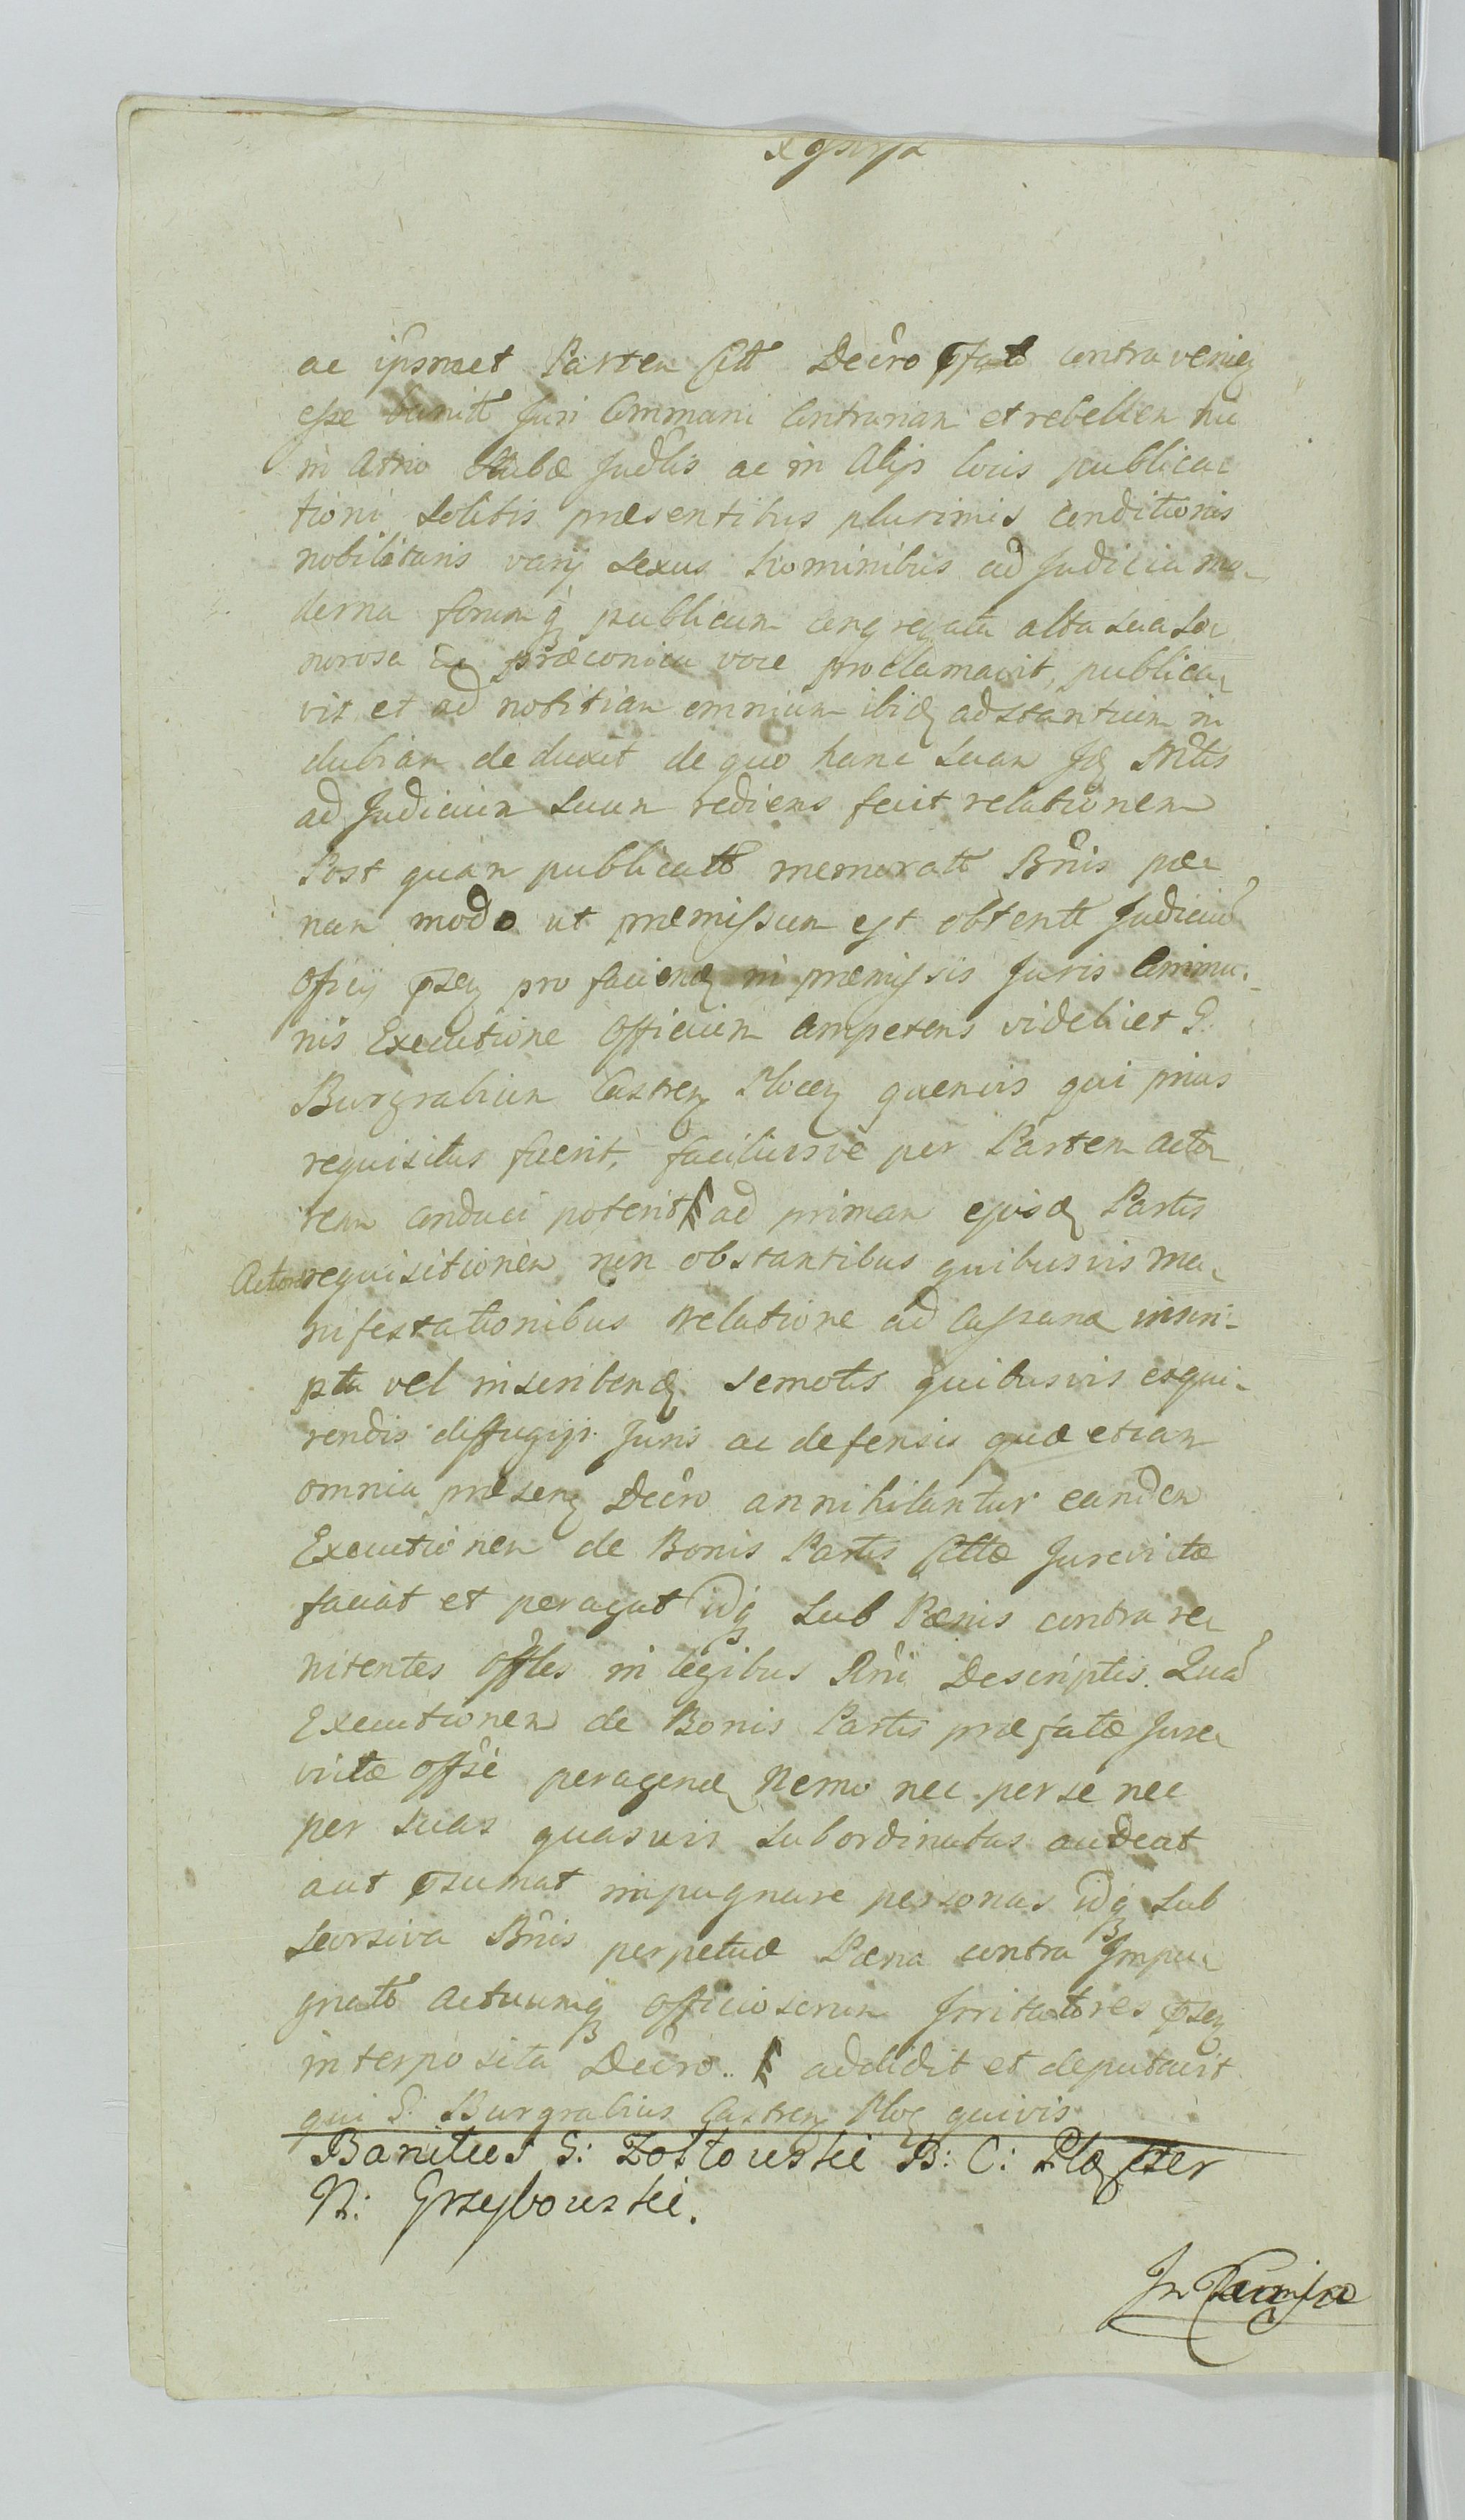 ac ipsmet Partem Citt Decro pfato contravenien
esse banitt Juri Communi Contrariam et rebellem hic
in Atrio Stubæ Judlis ac in Alijs locis publica
tioni solitis præsentibus plurimis conditionis
nobilitaris varij sexus hominibus ad Judicia mo
derna forumq publicum congregatis alta sua so
norosa Eq præconica voce proclamavit, publica
vit et ad notitiam omnium ibid adstantium in
dubiam deduxit de quo hanc suam Id Mtlis
ad Judicium suum rediens fecit relationem
Post quam publicatt memoratt Bnis pæ
nam modo ut præmissum est obtentt Judiciu
Officij psen pro faciend in præmissis Juris Commu
nis Executione Officium Competens videlicet G.
Burgrabium Castren Plocen quemvis qui prius
requisitus fuerit, faciliusve per Partem Acto
rem conduci poterit ad primam ejusd Partis
Actoreæ requisitionem non obstantibus quibusvis ma
nifestationibus relatione ad Cassand inscri-
ptis vel inscribend semotis quibusvis exqui-
rendis diffugijs Juris ac defensis quæ etiam
omnia præsen Decro annihilantur eandem
Executionem de Bonis Partis Cittæ Jurevictæ
faciat et peragat idq sub Pænis contra re
nitentes Offles in legibus Rni Descriptis. Qua
Executionem de Bonis Partis præfatæ Jure
victæ offse peragend Nemo nec per se nec
per suas quasvis subordinatas audeat
aut psumat impugnare personas idq sub
seorsiva Bnis perpetuæ Pæna contra Impu
gnatt Actuumq Officiosorum Irritatores psen
interposita Decro.. addidit et deputavit
qui G. Burgrabius Castren Ploc quivis
Banitus G: Zoltowski B: C: Ploc per
N: Grzybowski.